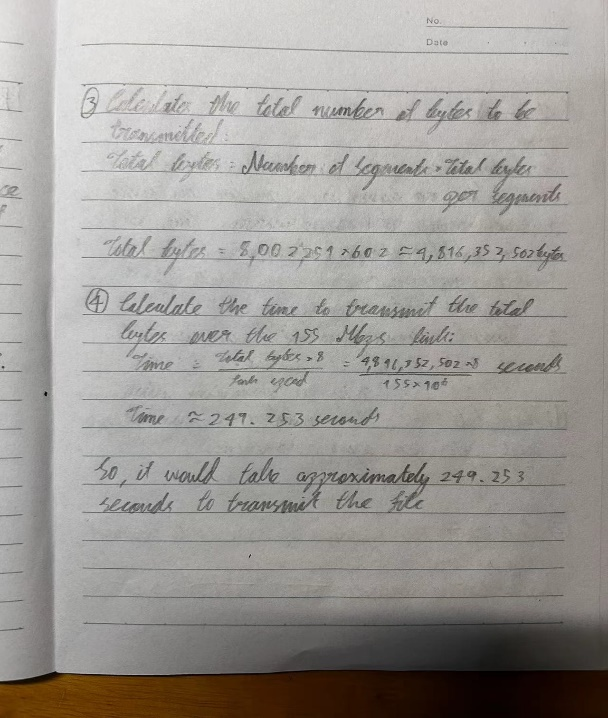 No.
Date
③ Calculate the total number of bytes to be
transmitted:
Total bytes = Number of segments × Total bytes
per segments
Total bytes = 8,002,259 × 602 ≈ 4,816,352,502 bytes
④ Calculate the time to transmit the total
bytes over the 155 Mbps link:
Time = Total bytes × 8 / Link speed = 4,816,352,502 × 8 / 155 × 10⁶ seconds
Time ≈ 249.253 seconds
So, it would take approximately 249.253
seconds to transmit the file